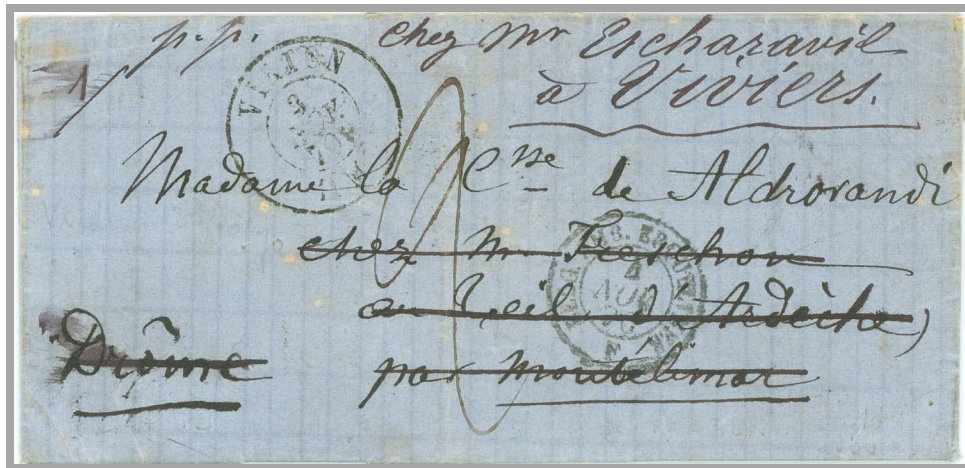 p.p. chez Mr Escharavil
à Viviers.
Madame la Csse de Aldrovandi
chez M. Freschon
au Teil d'Ardèche)
par Montelimar
Drôme